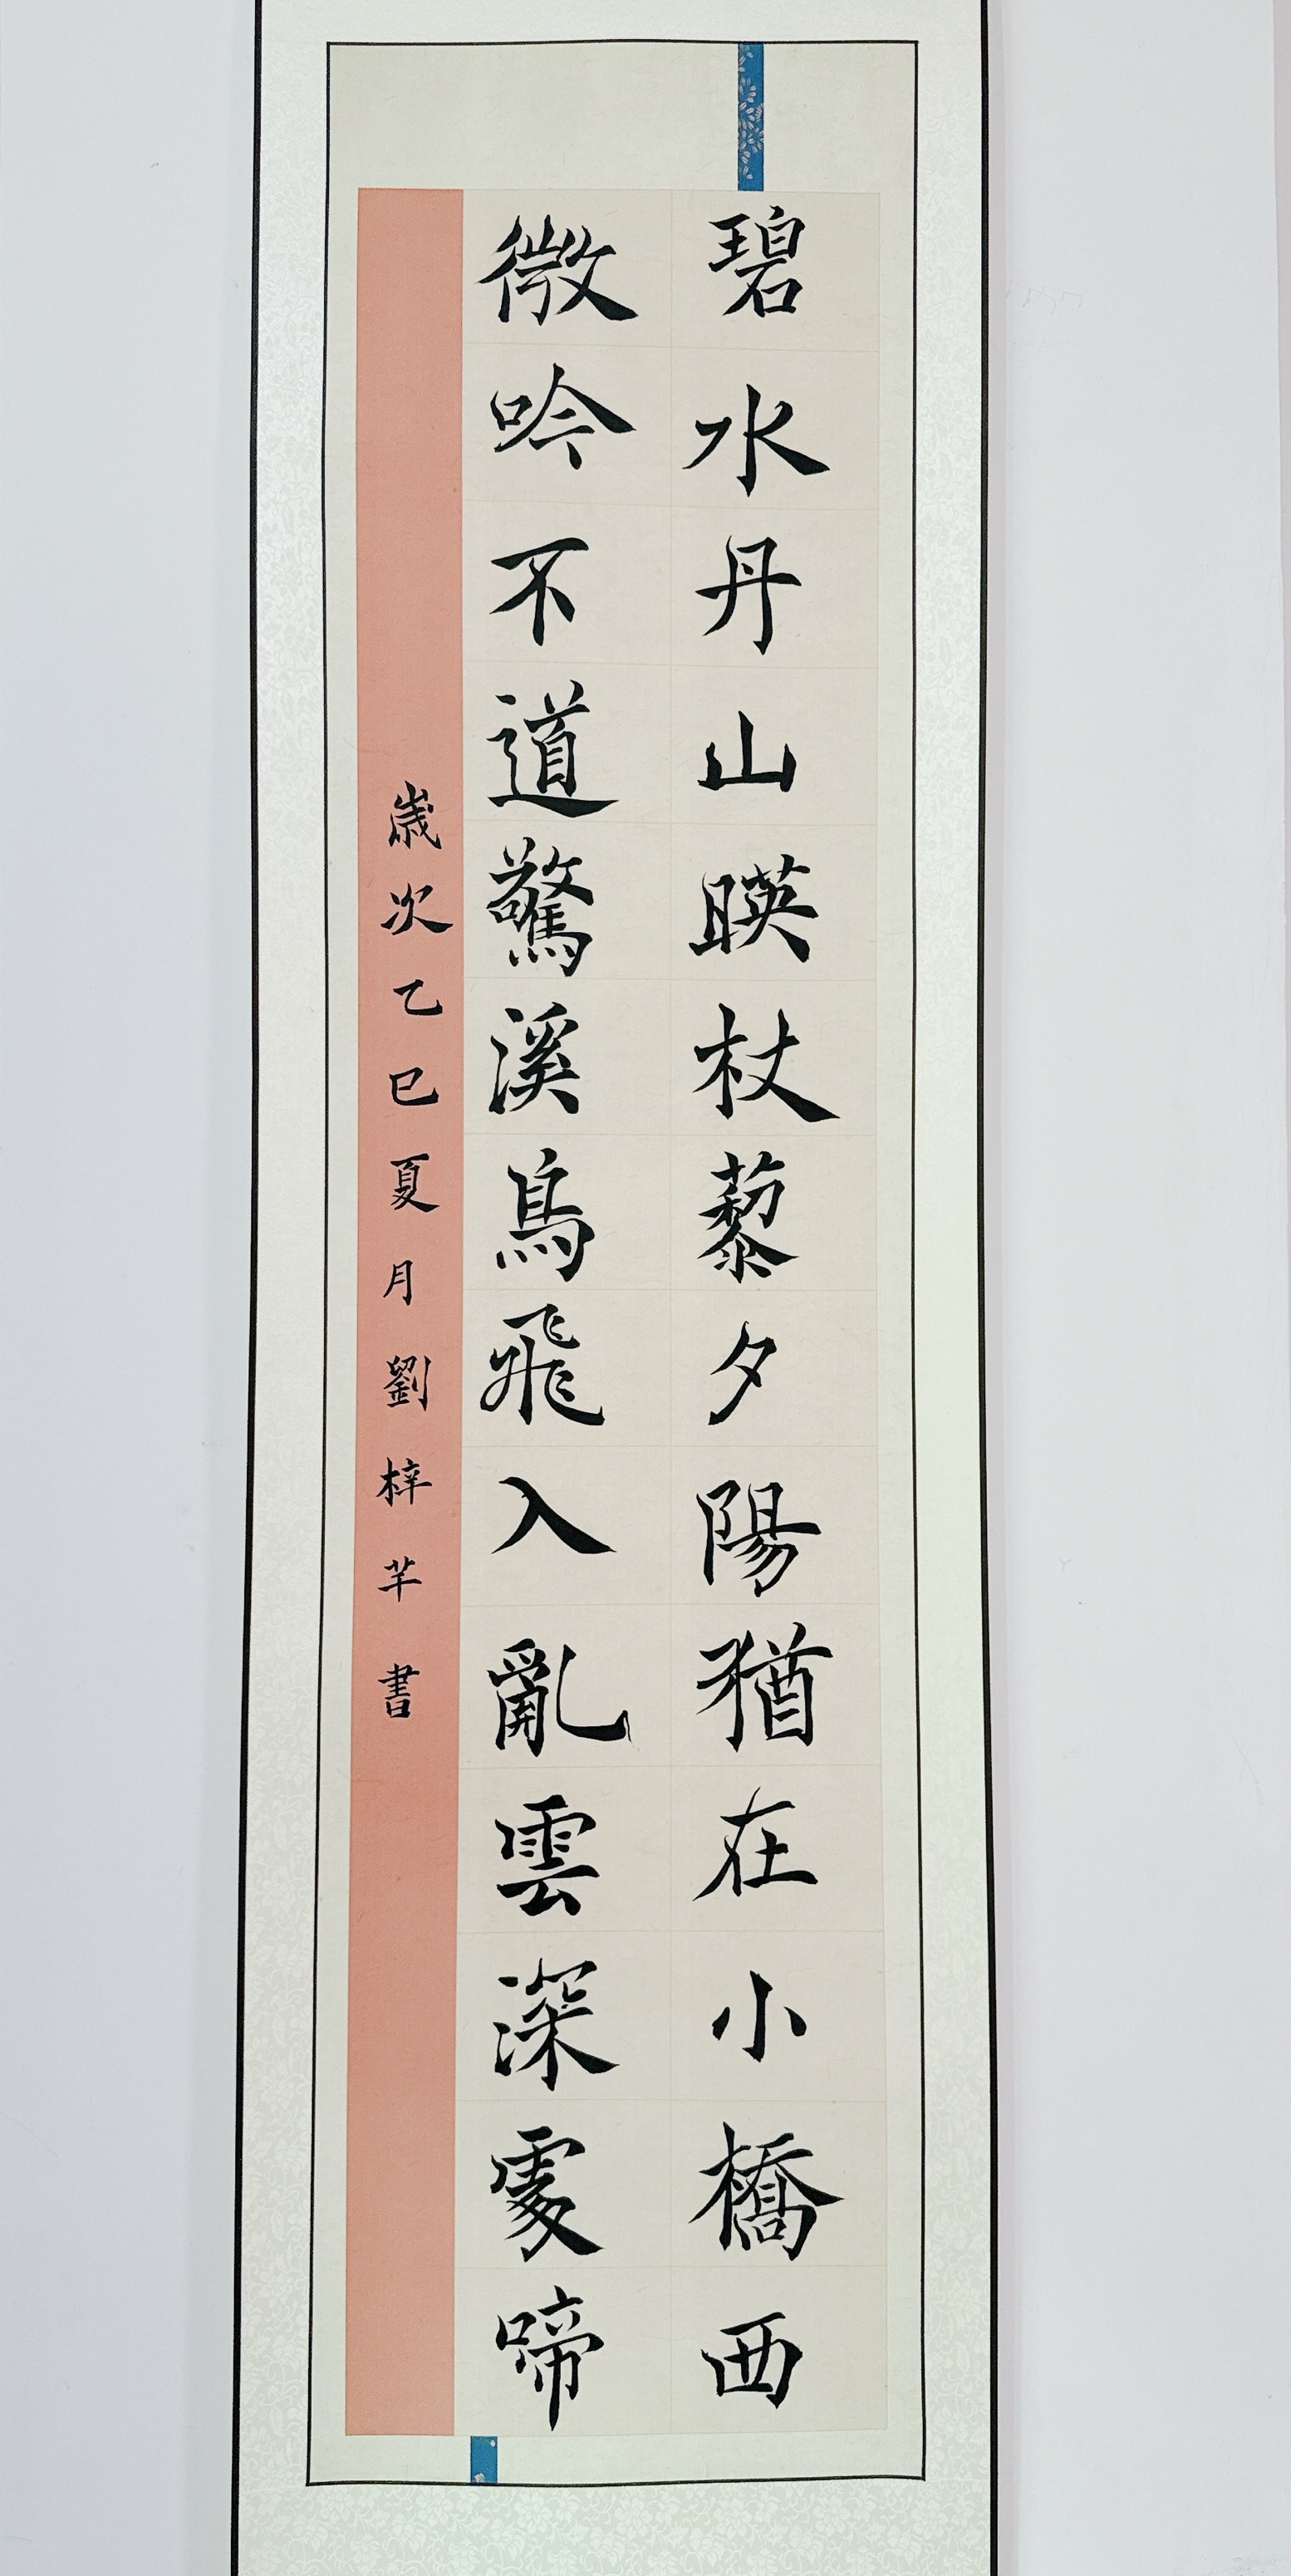 碧水丹山暎杖藜夕陽猶在小橋西
微吟不道驚溪鳥飛入亂雲深處啼
歲次乙巳夏月劉梓芊書